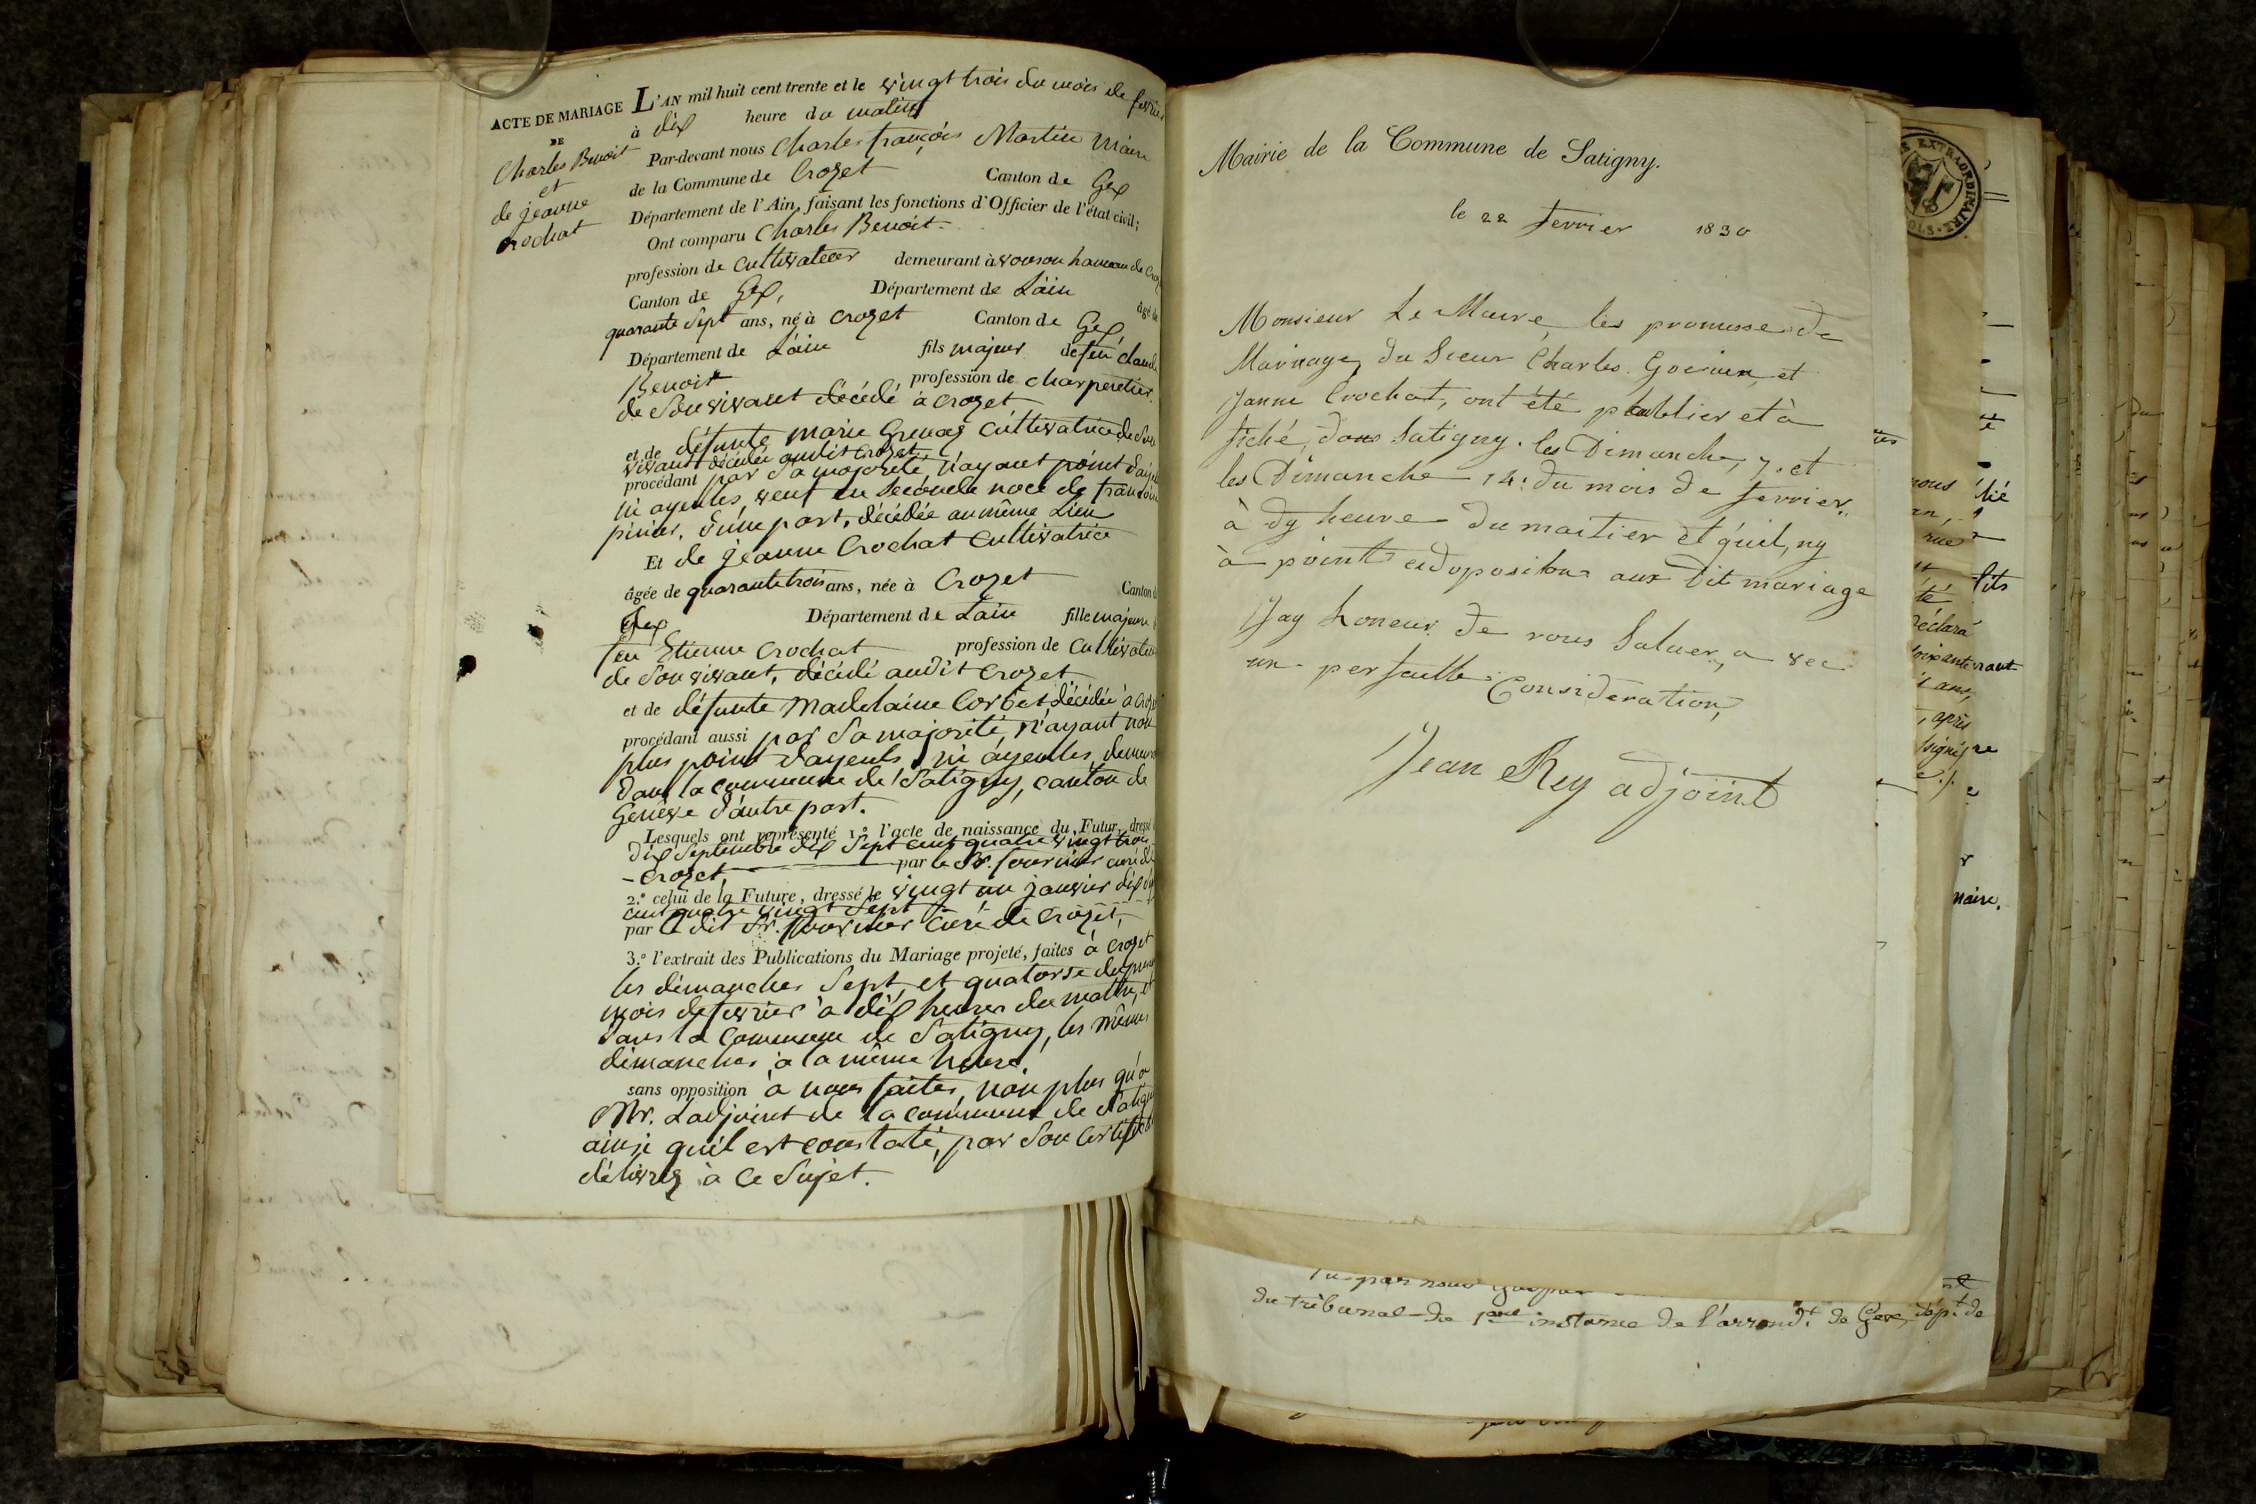 ACTE DE MARIAGE
DE
Charles Benoit
et
de jeanne
crochat
L'AN mil huit cent trente et le vingt trois du mois de fevrier
à dix heure du matin
Par-devant nous Charles françois Martin Maire
de la Commune de Crozet Canton de Gex
Département de l'Ain, faisant les fonctions d'Officier de l'état civil;
Ont comparu Charles Benoit.
profession de cultivateur demeurant à vouson hameau de Croz
Canton de Gex, Département de Lain âgé de
quarante Sept ans, né à Crozet Canton de Gex
Département de Lain fils majeur de feu claude
Benoit profession de charpentier.
de Son vivant décédé à Crozet
et de défunte marie cultivatrice de Son
vivant décédée audit Crozet,
procédant par Sa majorité, n'ayant point d'ayeuls
ni ayeules, veuf en Seconde noce de
d'une part, décédée au même Lieu
Et de jeanne Crochat cultivatrice
âgée de quarante trois ans, née à Crozet Canton d
Gex Département de Lain fille majeure
feu Etienne Crochat profession de Cultivateur
de Son vivant, décédé audit Crozet
et de défunte Madelaine Corbet décédée à Crozet
procédant aussi par Sa majorité, n'ayant non
plus point d'ayeuls, ni ayeules, demeurant
dans la commune de Satigny, canton de
Genève d'autre part.
Lesquels ont représenté 1.º l'acte de naissance du Futur, dressé
dix Septembre dix Sept cent quatre vingt trois
- Crozet, par le Sr. fournier curé de
2.º celui de la Future, dressé le vingt un janvier dix Sept
cent quatre vingt Sept
par le dit Sr. fournier Curé de Crozet,
3.º l'extrait des Publications du Mariage projeté, faites à Crozet
les dimanches Sept, et quatorse du présent
mois de fevrier à dix heures du matin, et
dans la Commune de Satigny, les mêmes
dimanches, à la même heure,
sans opposition à nous faites, non plus qu'a
Mr. Ladjoint de la commune de Satigny
ainsi qu'il est constaté, par Son Certificat
délivrez à ce Sujet.
Mairie de la Commune de Satigny.
le 22 fevrier 1830
Monsieur Le Maire, les promesse de
Mariage, du Sieur Charles et
Janne Crochat, ont été publier et à
fiché, dans Satigny. les Dimanche, 7. et
les Dimanche 14. du mois de fevrier.
à dy heure du maitier et quil, ny
à point edoposition aux dit mariage
Jay honeur de vous Saluer, a vec
un - perfaitte Consideration,
Jean Rey adjoint
du tribunal de 1ere instance de l'arrondt. de Gex, dépt. de